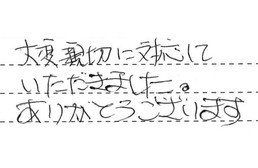 大変親切に対応して
いただきました。
ありがとうございます